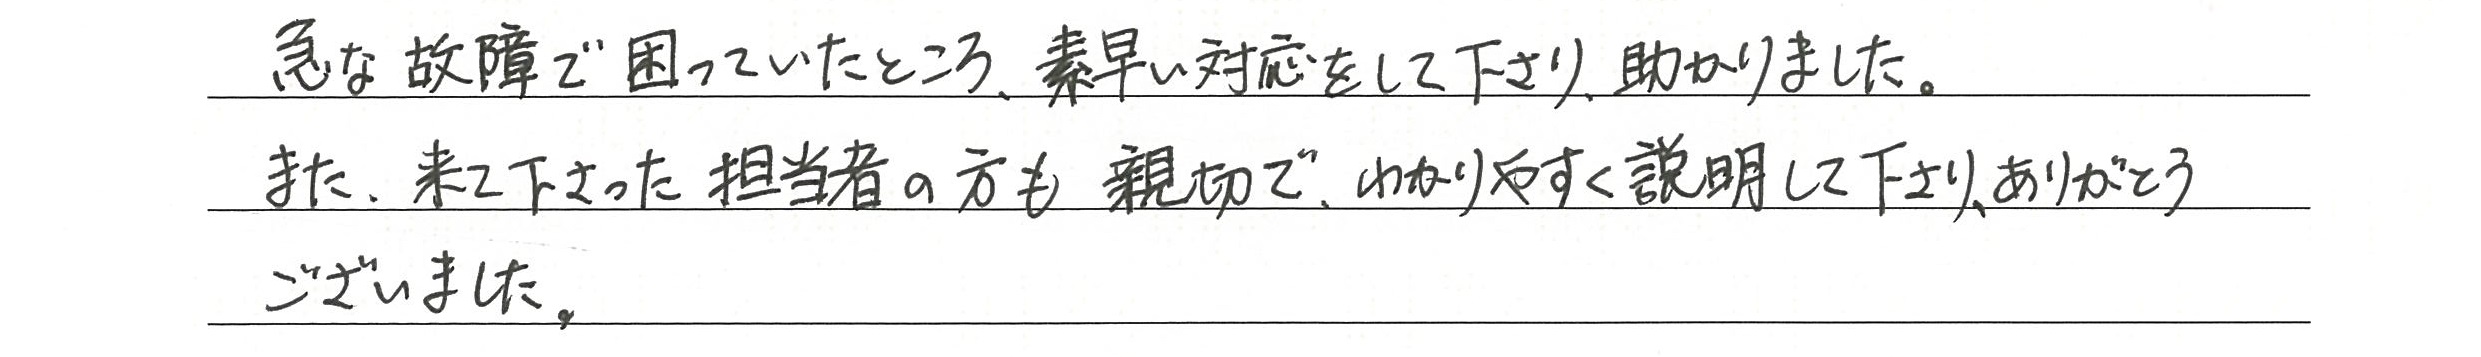 急な故障で困っていたところ、素早い対応をして下さり、助かりました。
また、来て下さった担当者の方も親切で、わかりやすく説明して下さり、ありがとう
ございました。